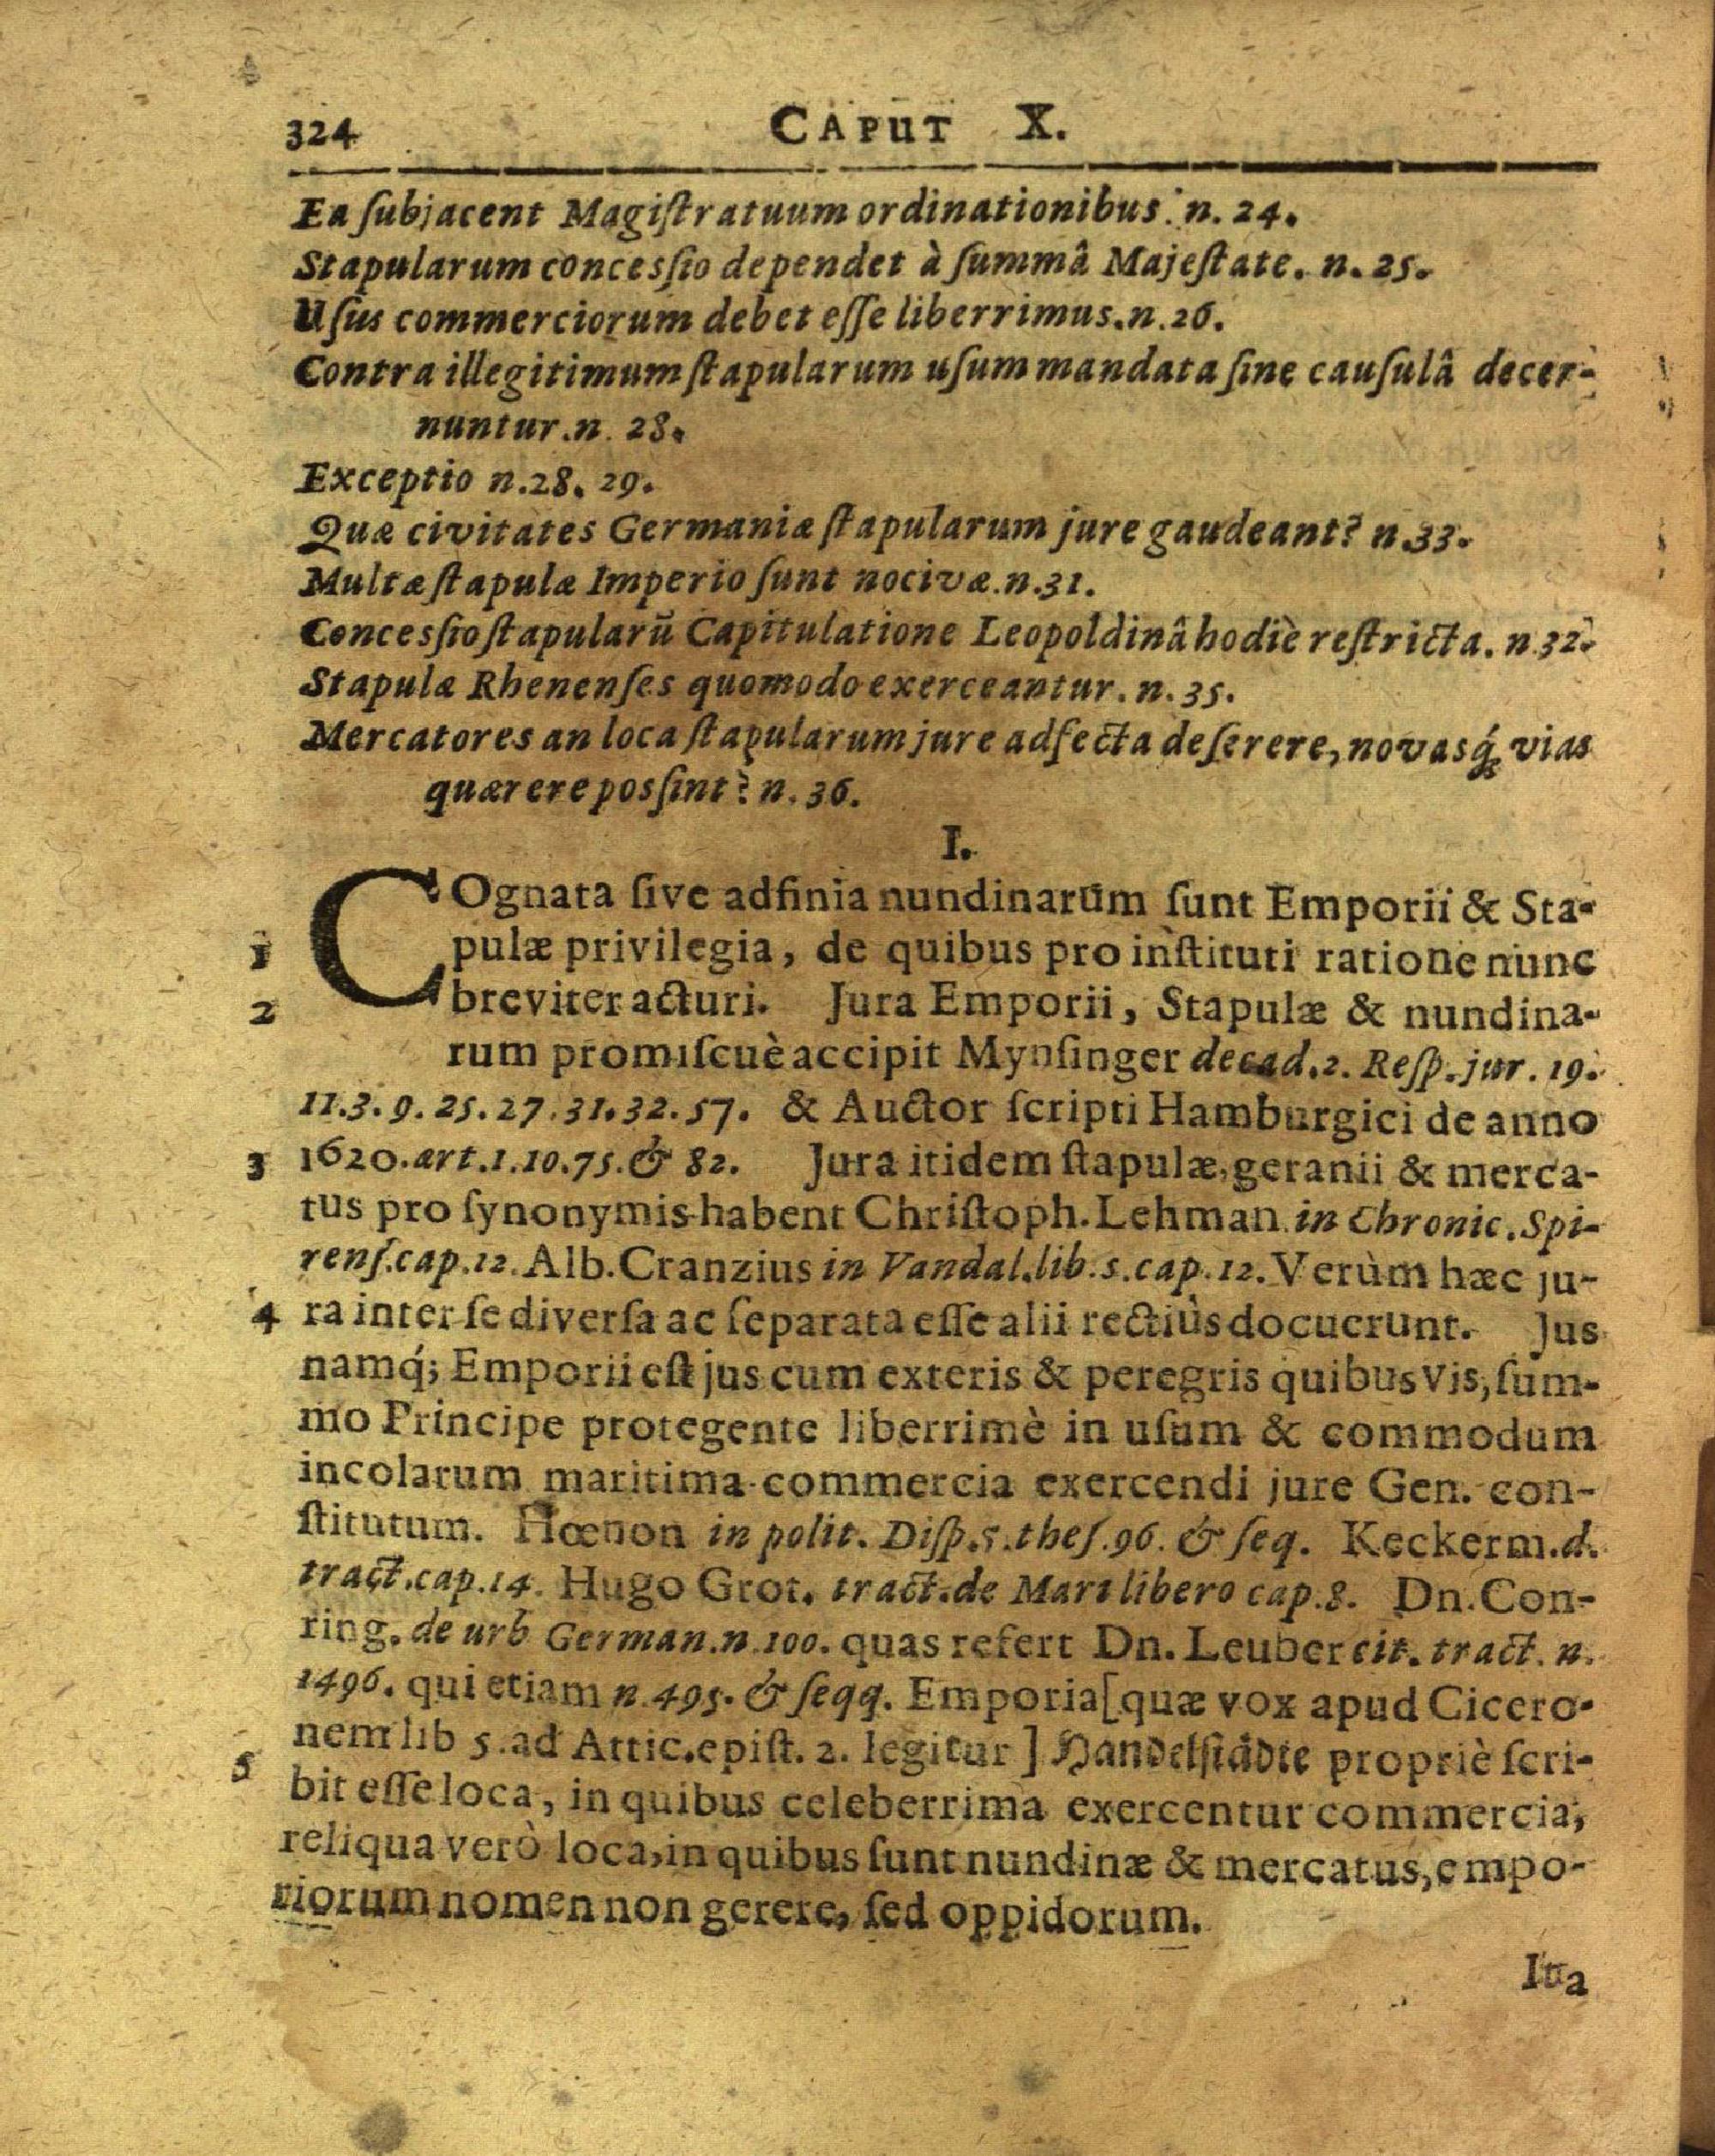 324 CAPUT X.
Ea ſubjacent Magiſtratuum ordinationibus. n. 24.
Stapularum conceſſio dependet à ſummâ Majeſtate. n. 25.
Uſus commerciorum debet eſſe liberrimus. n. 26.
Contra illegitimum ſtapularum uſum mandata ſine cauſulâ decer-
nuntur. n. 28.
Exceptio n. 28. 29.
Quæ civitates Germaniæ ſtapularum jure gaudeant? n. 33.
Multæ ſtapulæ Imperio ſunt nocivæ. n. 31.
Conceſſio ſtapularū Capitulatione Leopoldinâ hodiè reſtricta. n. 32.
Stapulæ Rhenenſes quomodo exerceantur. n. 35.
Mercatores an loca ſtapularum jure adfecta deſerere, novasq́; vias
quærere poſſint? n. 36.
I.
COgnata ſive adfinia nundinarūm ſunt Emporii & Sta-
1 pulæ privilegia, de quibus pro inſtituti ratione nunc
2 breviter acturi. Jura Emporii, Stapulæ & nundina-
rum promiſcuè accipit Mynſinger decad. 2. Reſp. jur. 19.
11. 3. 9. 25. 27. 31. 32. 57. & Auctor ſcripti Hamburgici de anno
3 1620. art. 1. 10. 75. & 82. Jura itidem ſtapulæ, geranii & merca-
tus pro ſynonymis habent Chriſtoph. Lehman in Chronic. Spi-
renſ. cap. 12. Alb. Cranzius in Vandal. lib. 5. cap. 12. Verùm hæc ju-
4 ra inter ſe diverſa ac ſeparata eſſe alii rectiùs docuerunt. Jus
namq́; Emporii eſt jus cum exteris & peregris quibus vis, ſum-
mo Principe protegente liberrimè in uſum & commodum
incolarum maritima commercia exercendi jure Gen. con-
ſtitutum. Hœnon in polit. Diſp. 5. theſ. 96. & ſeq. Keckerm. d.
tract. cap. 14. Hugo Grot. tract. de Mari libero cap. 8. Dn. Con-
ring. de urb German. n. 100. quas refert Dn. Leuber cit. tract. n.
1496. qui etiam n. 495. & ſeqq. Emporia [quæ vox apud Cicero-
nem lib 5. ad Attic. epiſt. 2. legitur] Handelſtädte propriè ſcri-
5 bit eſſe loca, in quibus celeberrima exercentur commercia,
reliqua verò loca, in quibus ſunt nundinæ & mercatus, empo-
riorum nomen non gerere, ſed oppidorum.
Ita